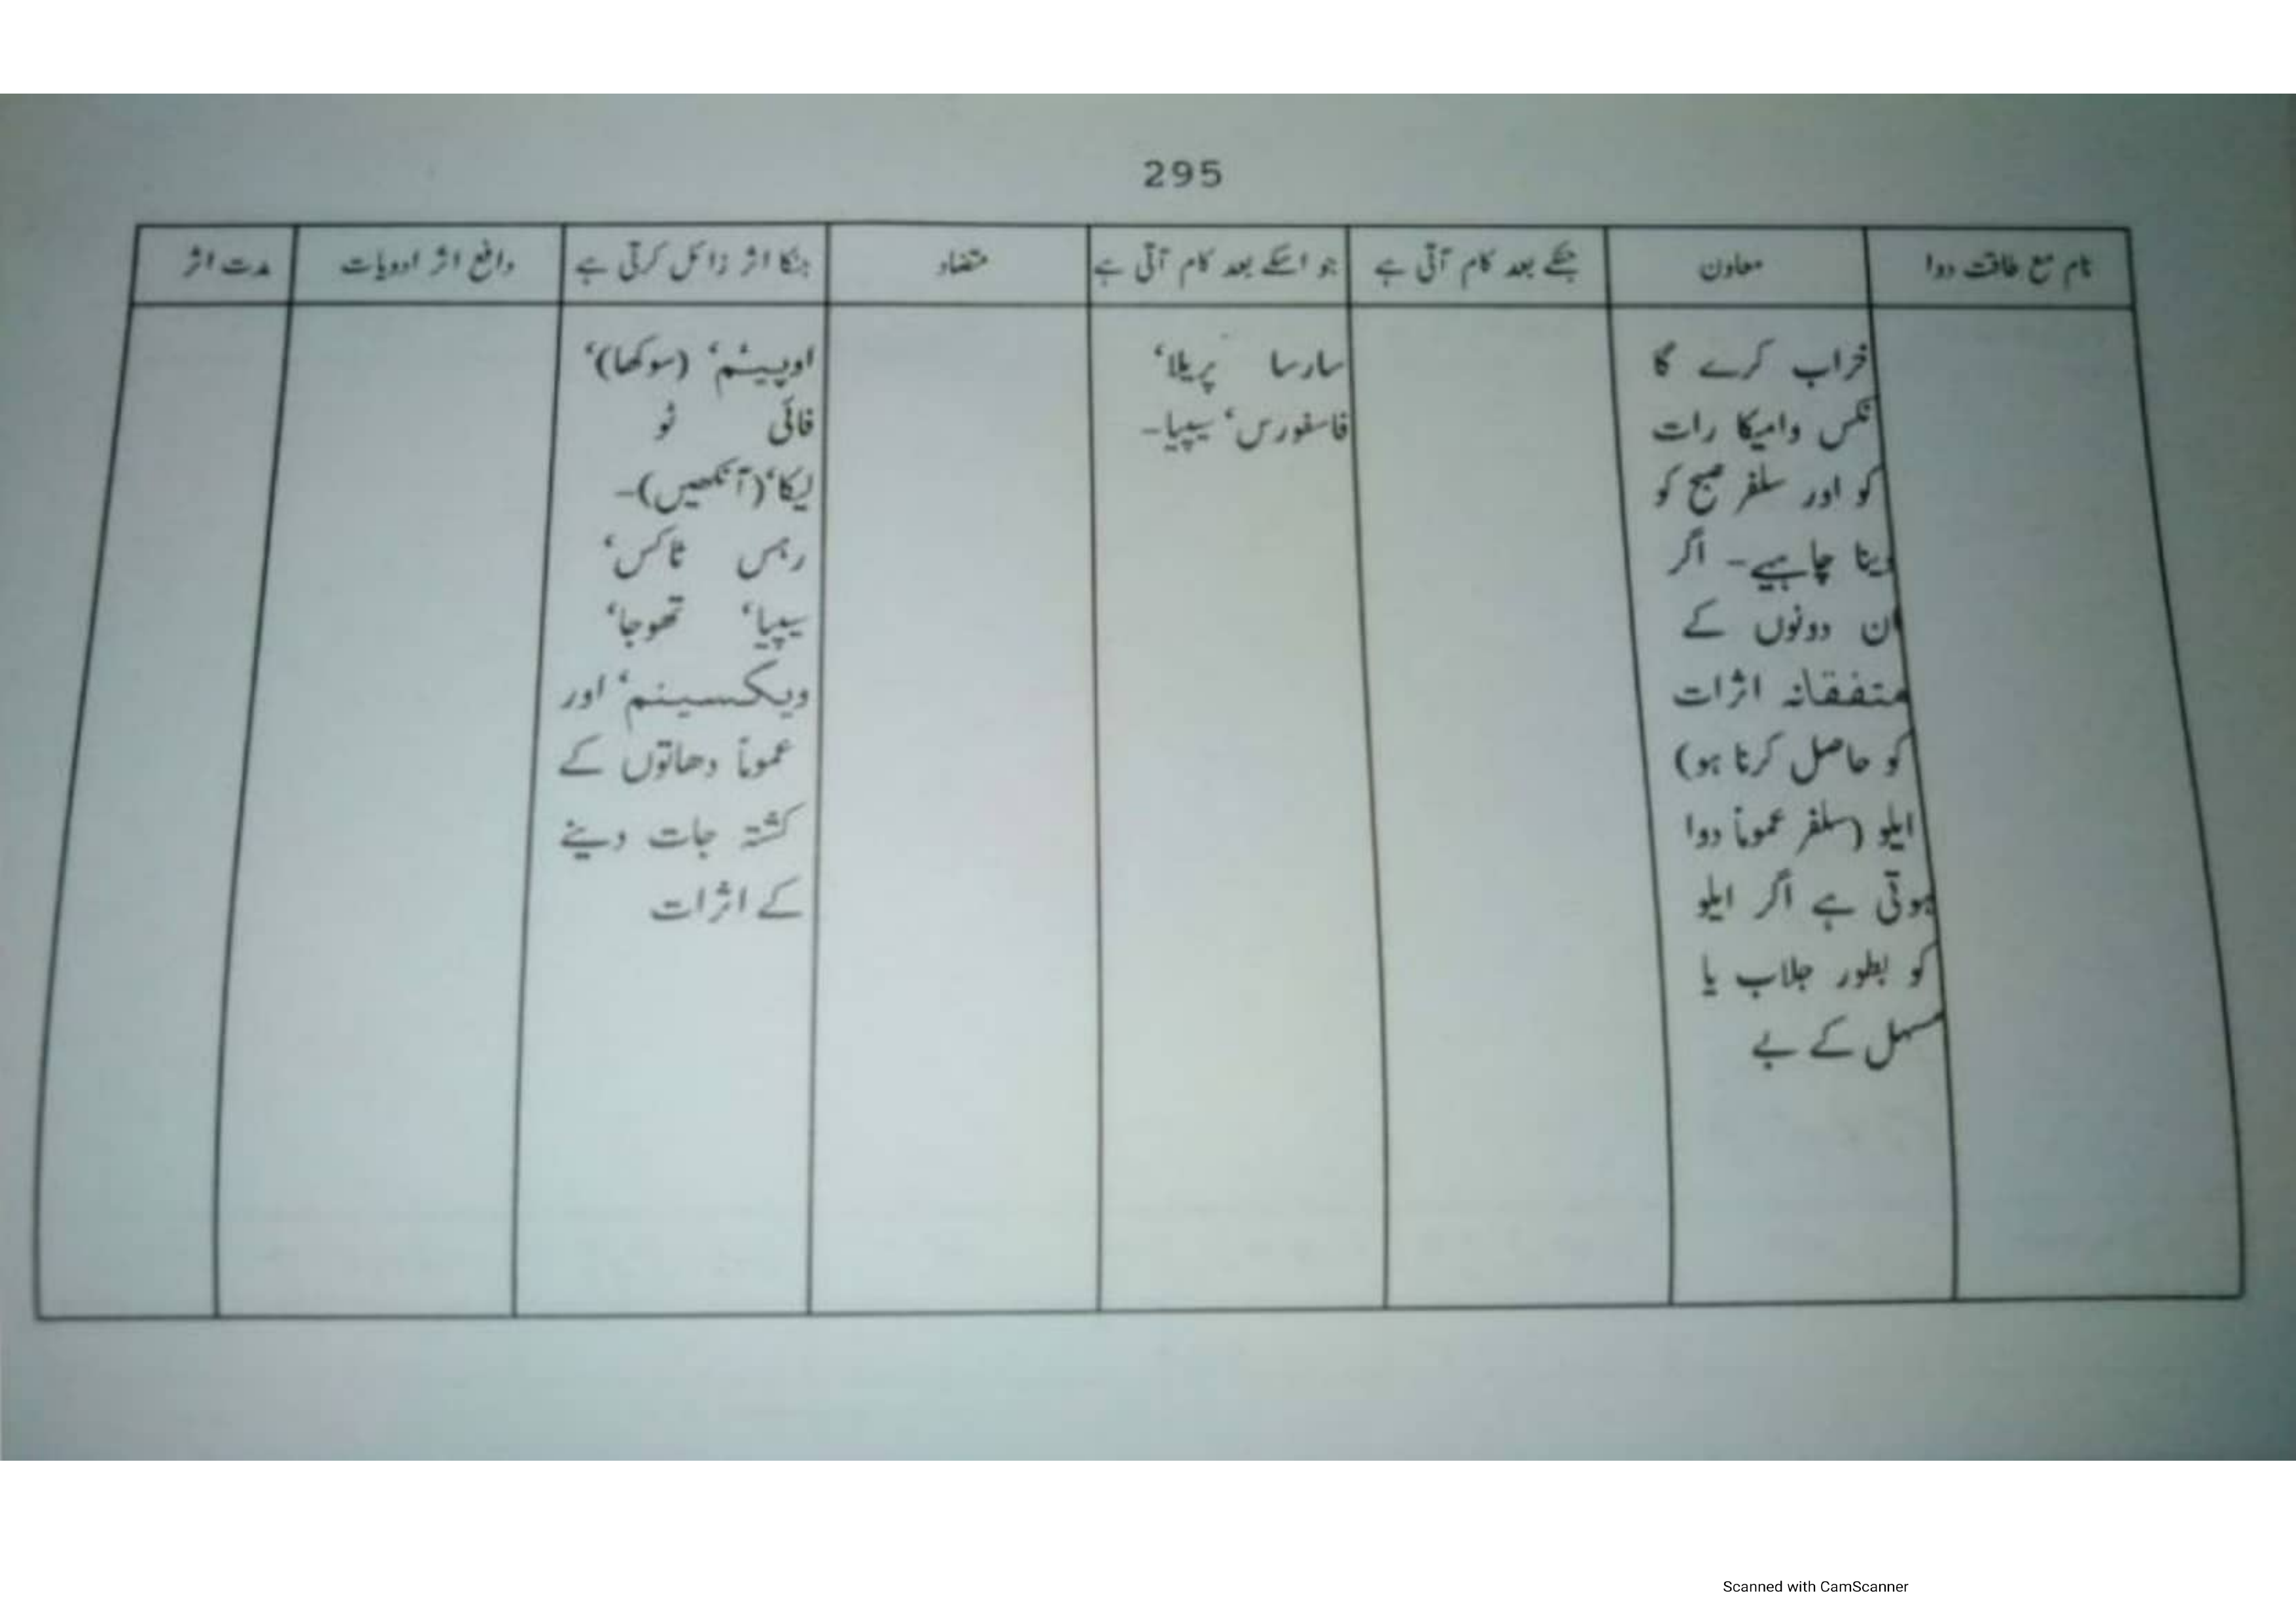 295
نام مع طاقت دوا
معاون
جسکے بعد کام آتی ہے
جو اسکے بعد کام آتی ہے
متضاد
جنکا اثر زائل کرتی ہے
دافع اثر ادویات
مدت اثر
خراب کرے گا
نکس وامیکا رات
کو اور سلفر صبح کو
دینا چاہیے۔ اگر
ان دونوں کے
متفقانہ اثرات
کو حاصل کرنا ہو)
ایلو (سلفر عموماً دوا
ہوتی ہے اگر ایلو
کو بطور جلاب یا
مسہل کے بے
سارسا پریلا،
فاسفورس، سیپیا۔
اوپیئم، (سوکھا)،
فائی ٹو
لیکا، (آنکھیں)۔
رہس ٹاکس،
سیپیا، تھوجا،
ویکسینم، اور
عموماً دھاتوں کے
کشتہ جات دینے
کے اثرات
Scanned with CamScanner